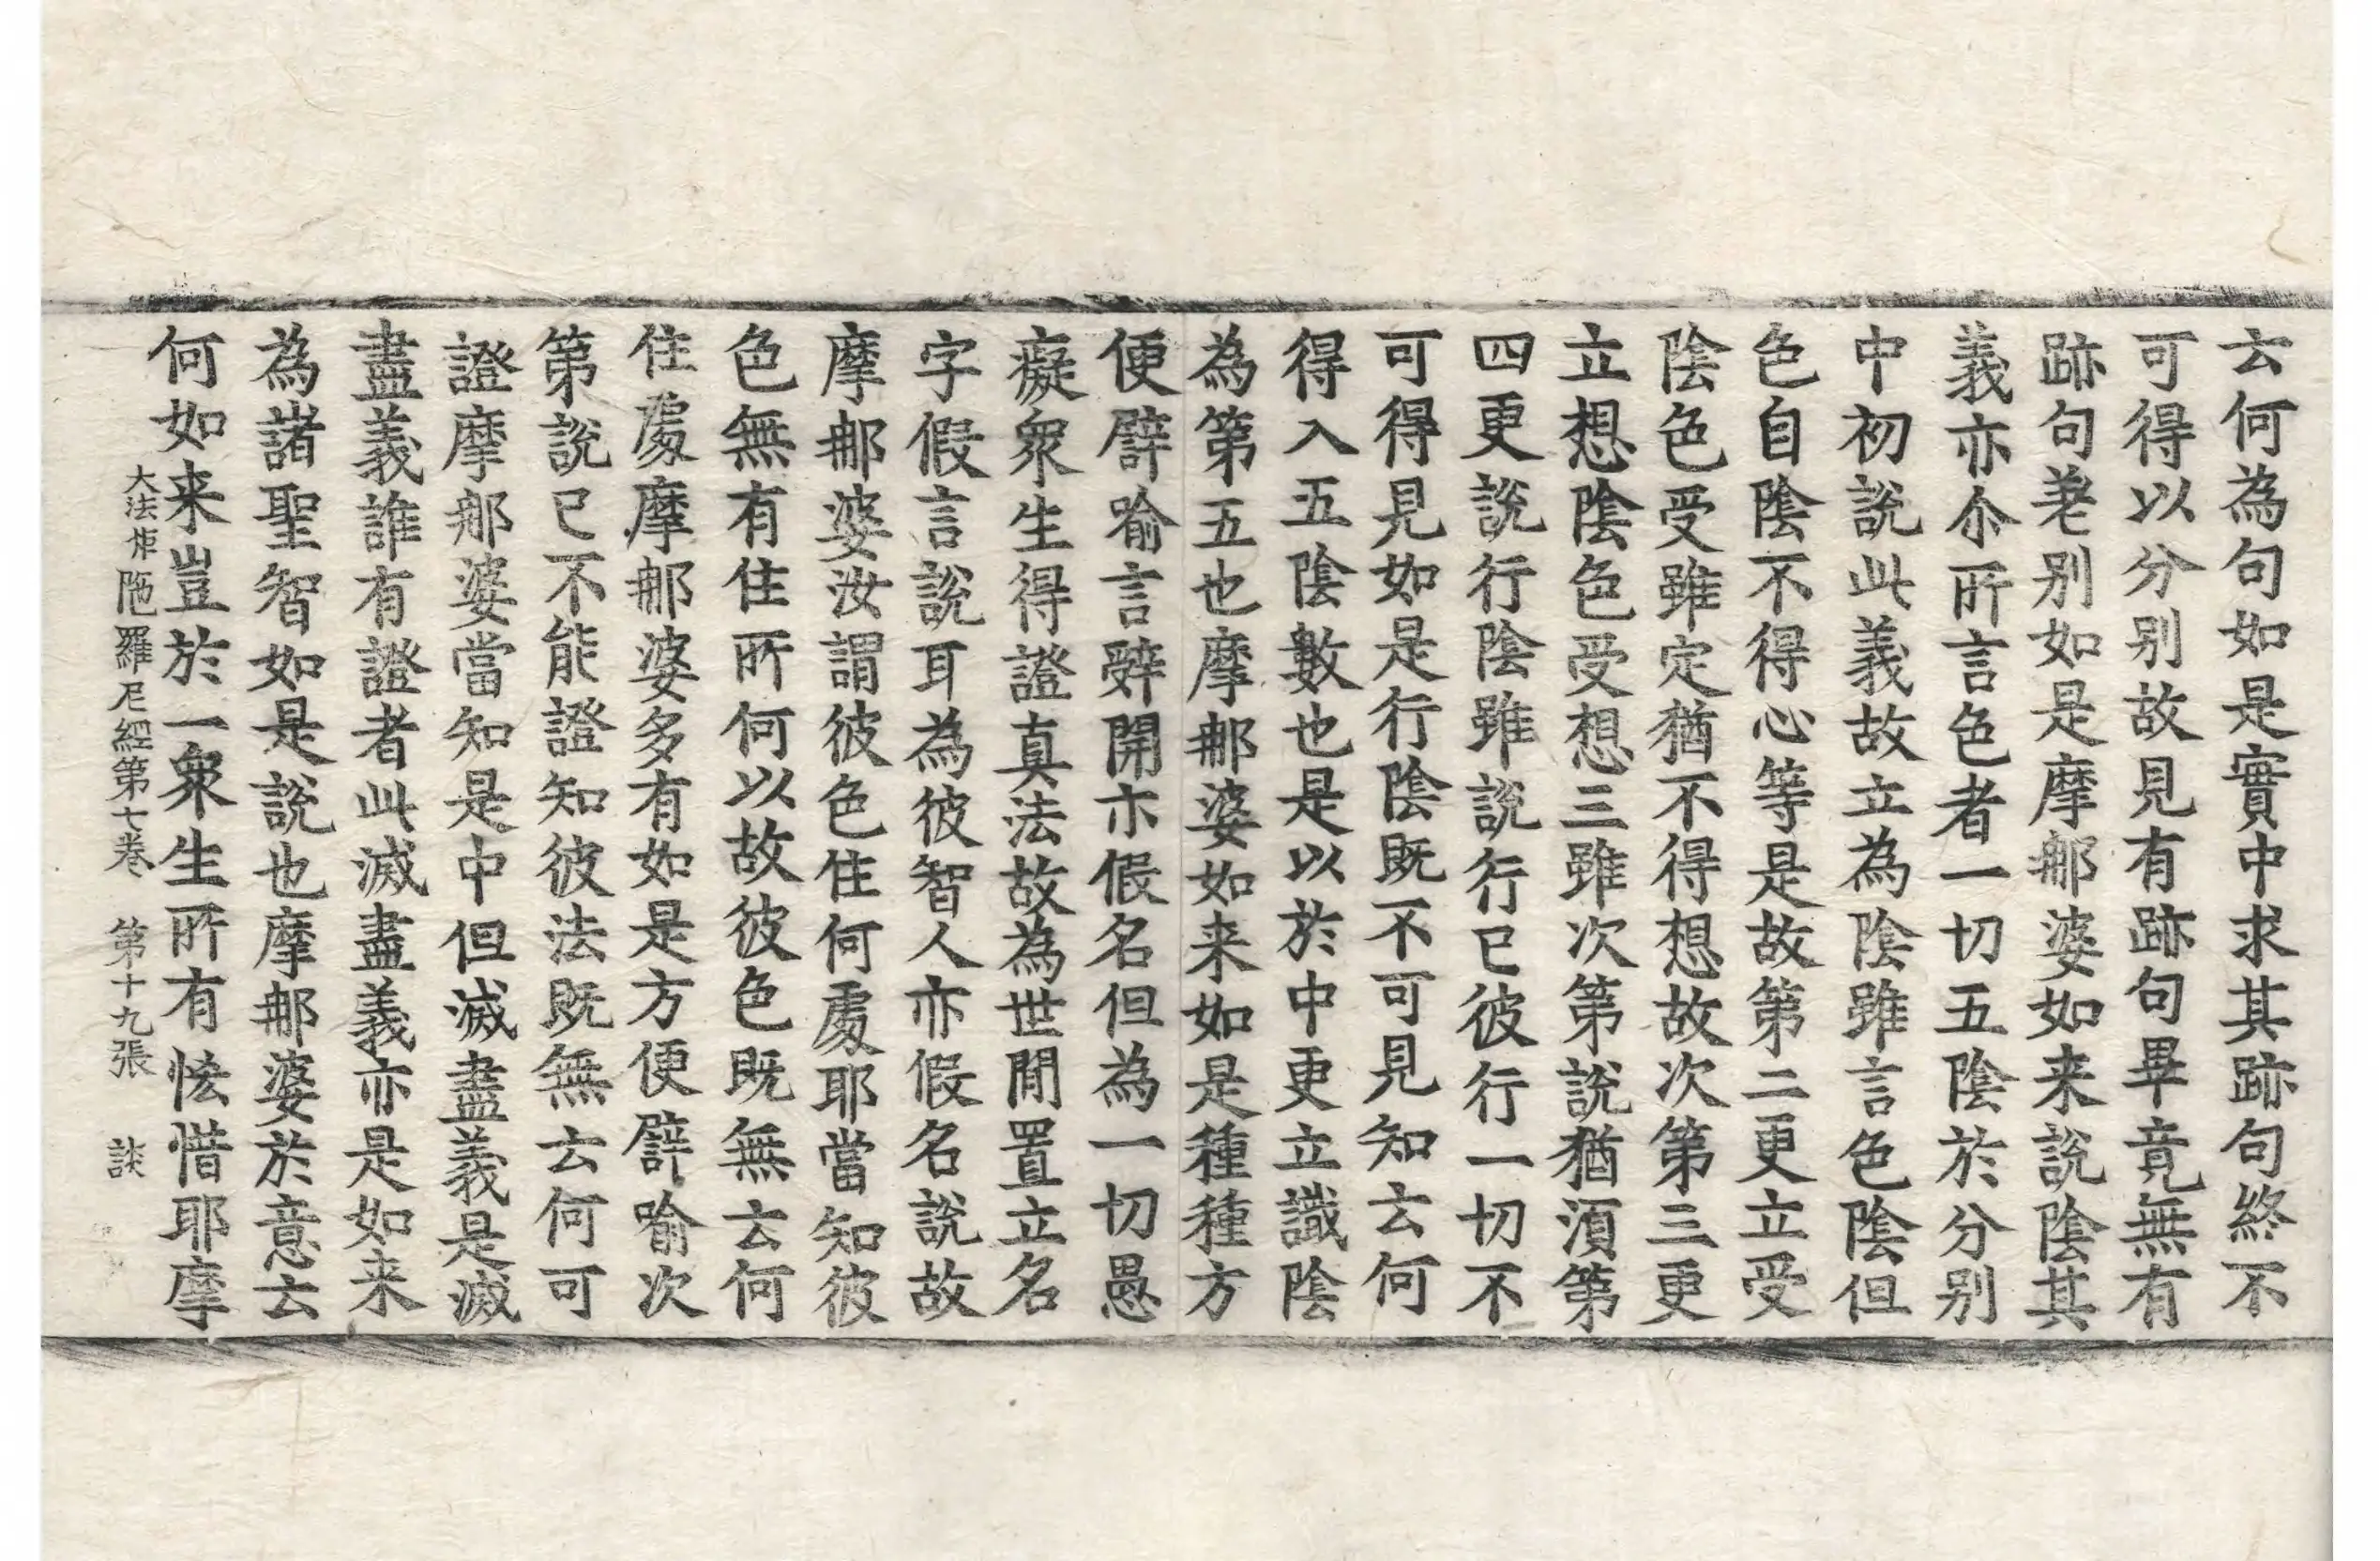 云何為句如是實中求其跡句終不
可得以分别故見有跡句畢竟無有
跡句差别如是摩那婆如来說陰其
義亦尒所言色者一切五陰於分别
中初說此義故立為陰雖言色陰但
色自陰不得心等是故第二更立受
陰色受雖定猶不得想故次第三更
立想陰色受想三雖次第說猶湏第
四更說行陰雖說行已彼行一切不
可得見如是行陰既不可見知云何
得入五陰數也是以於中更立識陰
為第五也摩那婆如来如是種種方
便譬喻言辭開示假名但為一切愚
癡衆生得證真法故為世間置立名
字假言說耳為彼智人亦假名說故
摩那婆汝謂彼色住何處耶當知彼
色無有住所何以故彼色既無云何
住處摩那婆多有如是方便譬喻次
第說已不能證知彼法既無云何可
證摩那婆當知是中但滅盡義是滅
盡義誰有證者此滅盡義亦是如来
為諸聖智如是說也摩那婆於意云
何如来豈於一衆生所有悋惜耶摩
大法炬陁羅尼經第七卷　第十九張　談